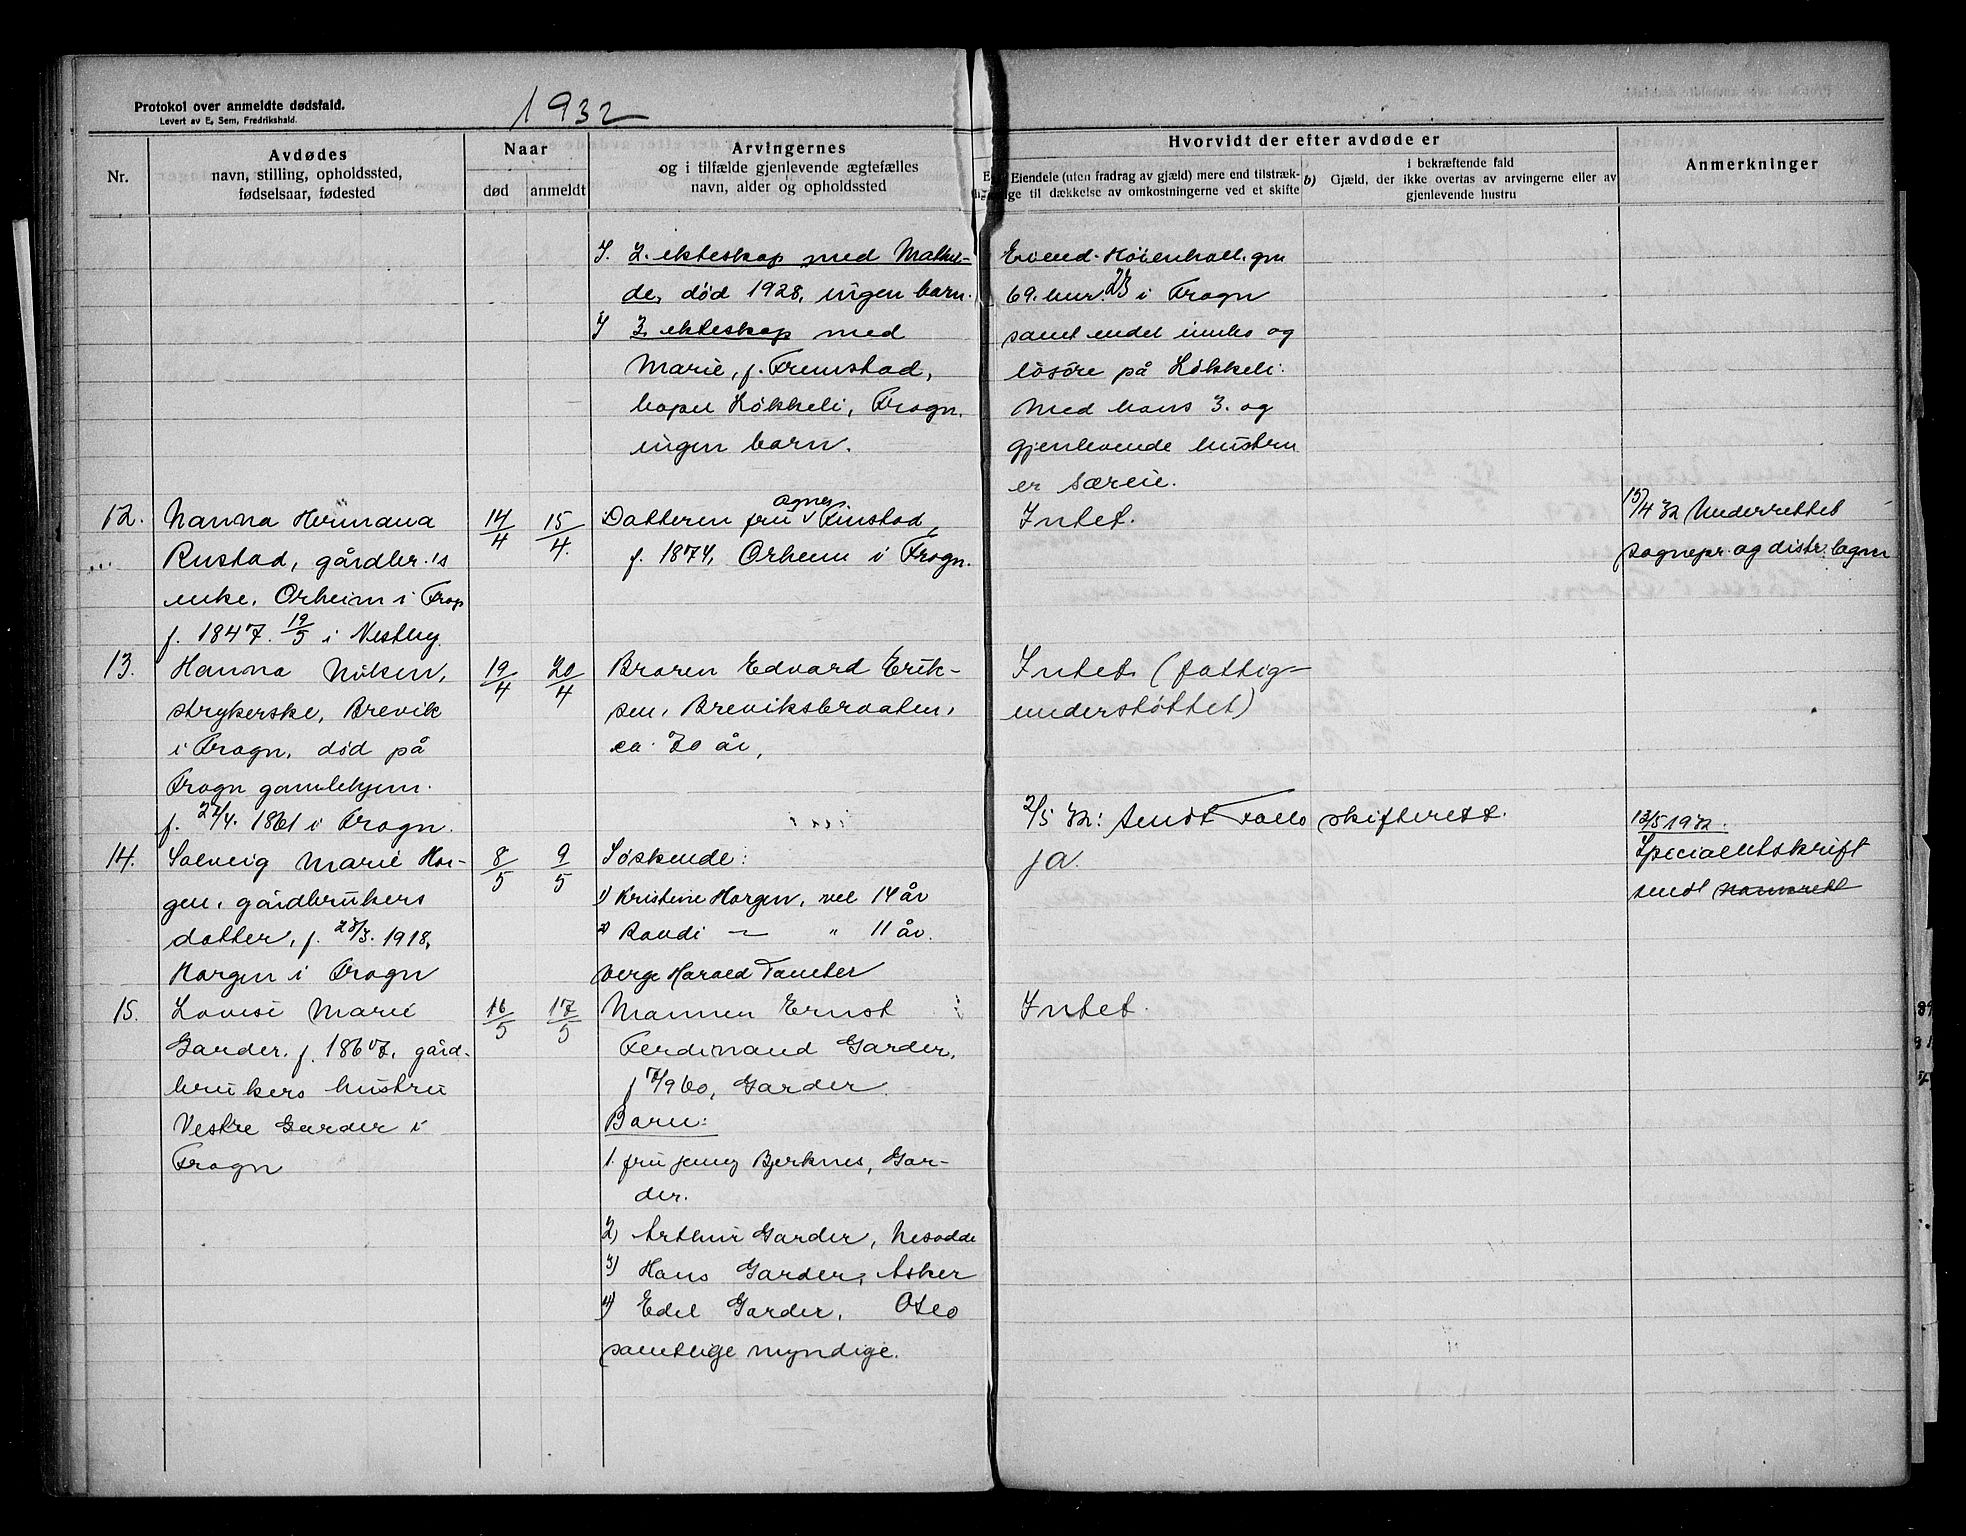 Protokol over anmeldte dødsfald.
Levert av E. Sem, Fredrikshald.
1932
Nr.
Avdødes
navn, stilling, opholdssted,
fødselsaar, fødested
Naar
død
anmeldt
Arvingernes
og i tilfælde gjenlevende ægtefælles
navn, alder og opholdssted
Hvorvidt der efter avdøde er
Eiendele (uten fradrag av gjæld) mere end tilstræk-
ge til dækkelse av omkostningerne ved et skifte
b)
i bekræftende fald
Gjæld, der ikke overtas av arvingerne eller av
gjenlevende hustru
Anmerkninger
2. ekteskap med Mathil-
de, død 1928, ingen barn.
3. ekteskap med
Marie, f. Fremstad,
Løkkeli, Frogn,
ingen barn.
Eiend. Høienhall. gnr
69. bnr. 23 i Frogn
samt endel innbo og
løsøre på Løkkeli.
Med hans 3. og
gjenlevende hustru
er særeie.
12.
Nanna Hermana
Rustad, gårdbr.'s
enke, Orheim i Frogn
f. 1847. 19/5 i Vestby
14/4
15/4.
Datteren fru Agnes Finstad,
f. 1874, Orheim i Frogn.
Intet.
15/4 32 Underrettet
sognepr. og distr. legen
13.
Hanna Nilsen,
strykerske, Brevik
i Frogn, død på
Frogn gamlehjem.
f. 22/4. 1861 i Frogn.
19/4
20/4
Broren Edvard Erik-
sen, Breviksbraaten,
ca. 70 år,
Intet (fattig-
understøttet)
2/5 32: Sendt Follo skifterett.
14.
Solveig Marie Hor-
gen, gårdbrukers
datter, f. 28/3. 1918,
Horgen i Frogn
8/5
9/5
Søskende:
1) Kristine Horgen, vel 14 år
2) Randi — " 11 år.
verge Harald Tamber
ja.
13/5 1932.
Specialutskrift
sendt
15.
Lovise Marie
Garder. f. 1867, gård-
brukers hustru
Vestre Garder i
Frogn
16/5
17/5
Mannen Ernst
Ferdinand Garder,
f 17/9 60, Garder.
Barn:
1. fru Jenny Bjerknes, Gar-
der.
2) Arthur Garder, Nesodde
3) Hans Garder, Asker
4) Edel Garder, Oslo
samtlige myndige.
Intet.